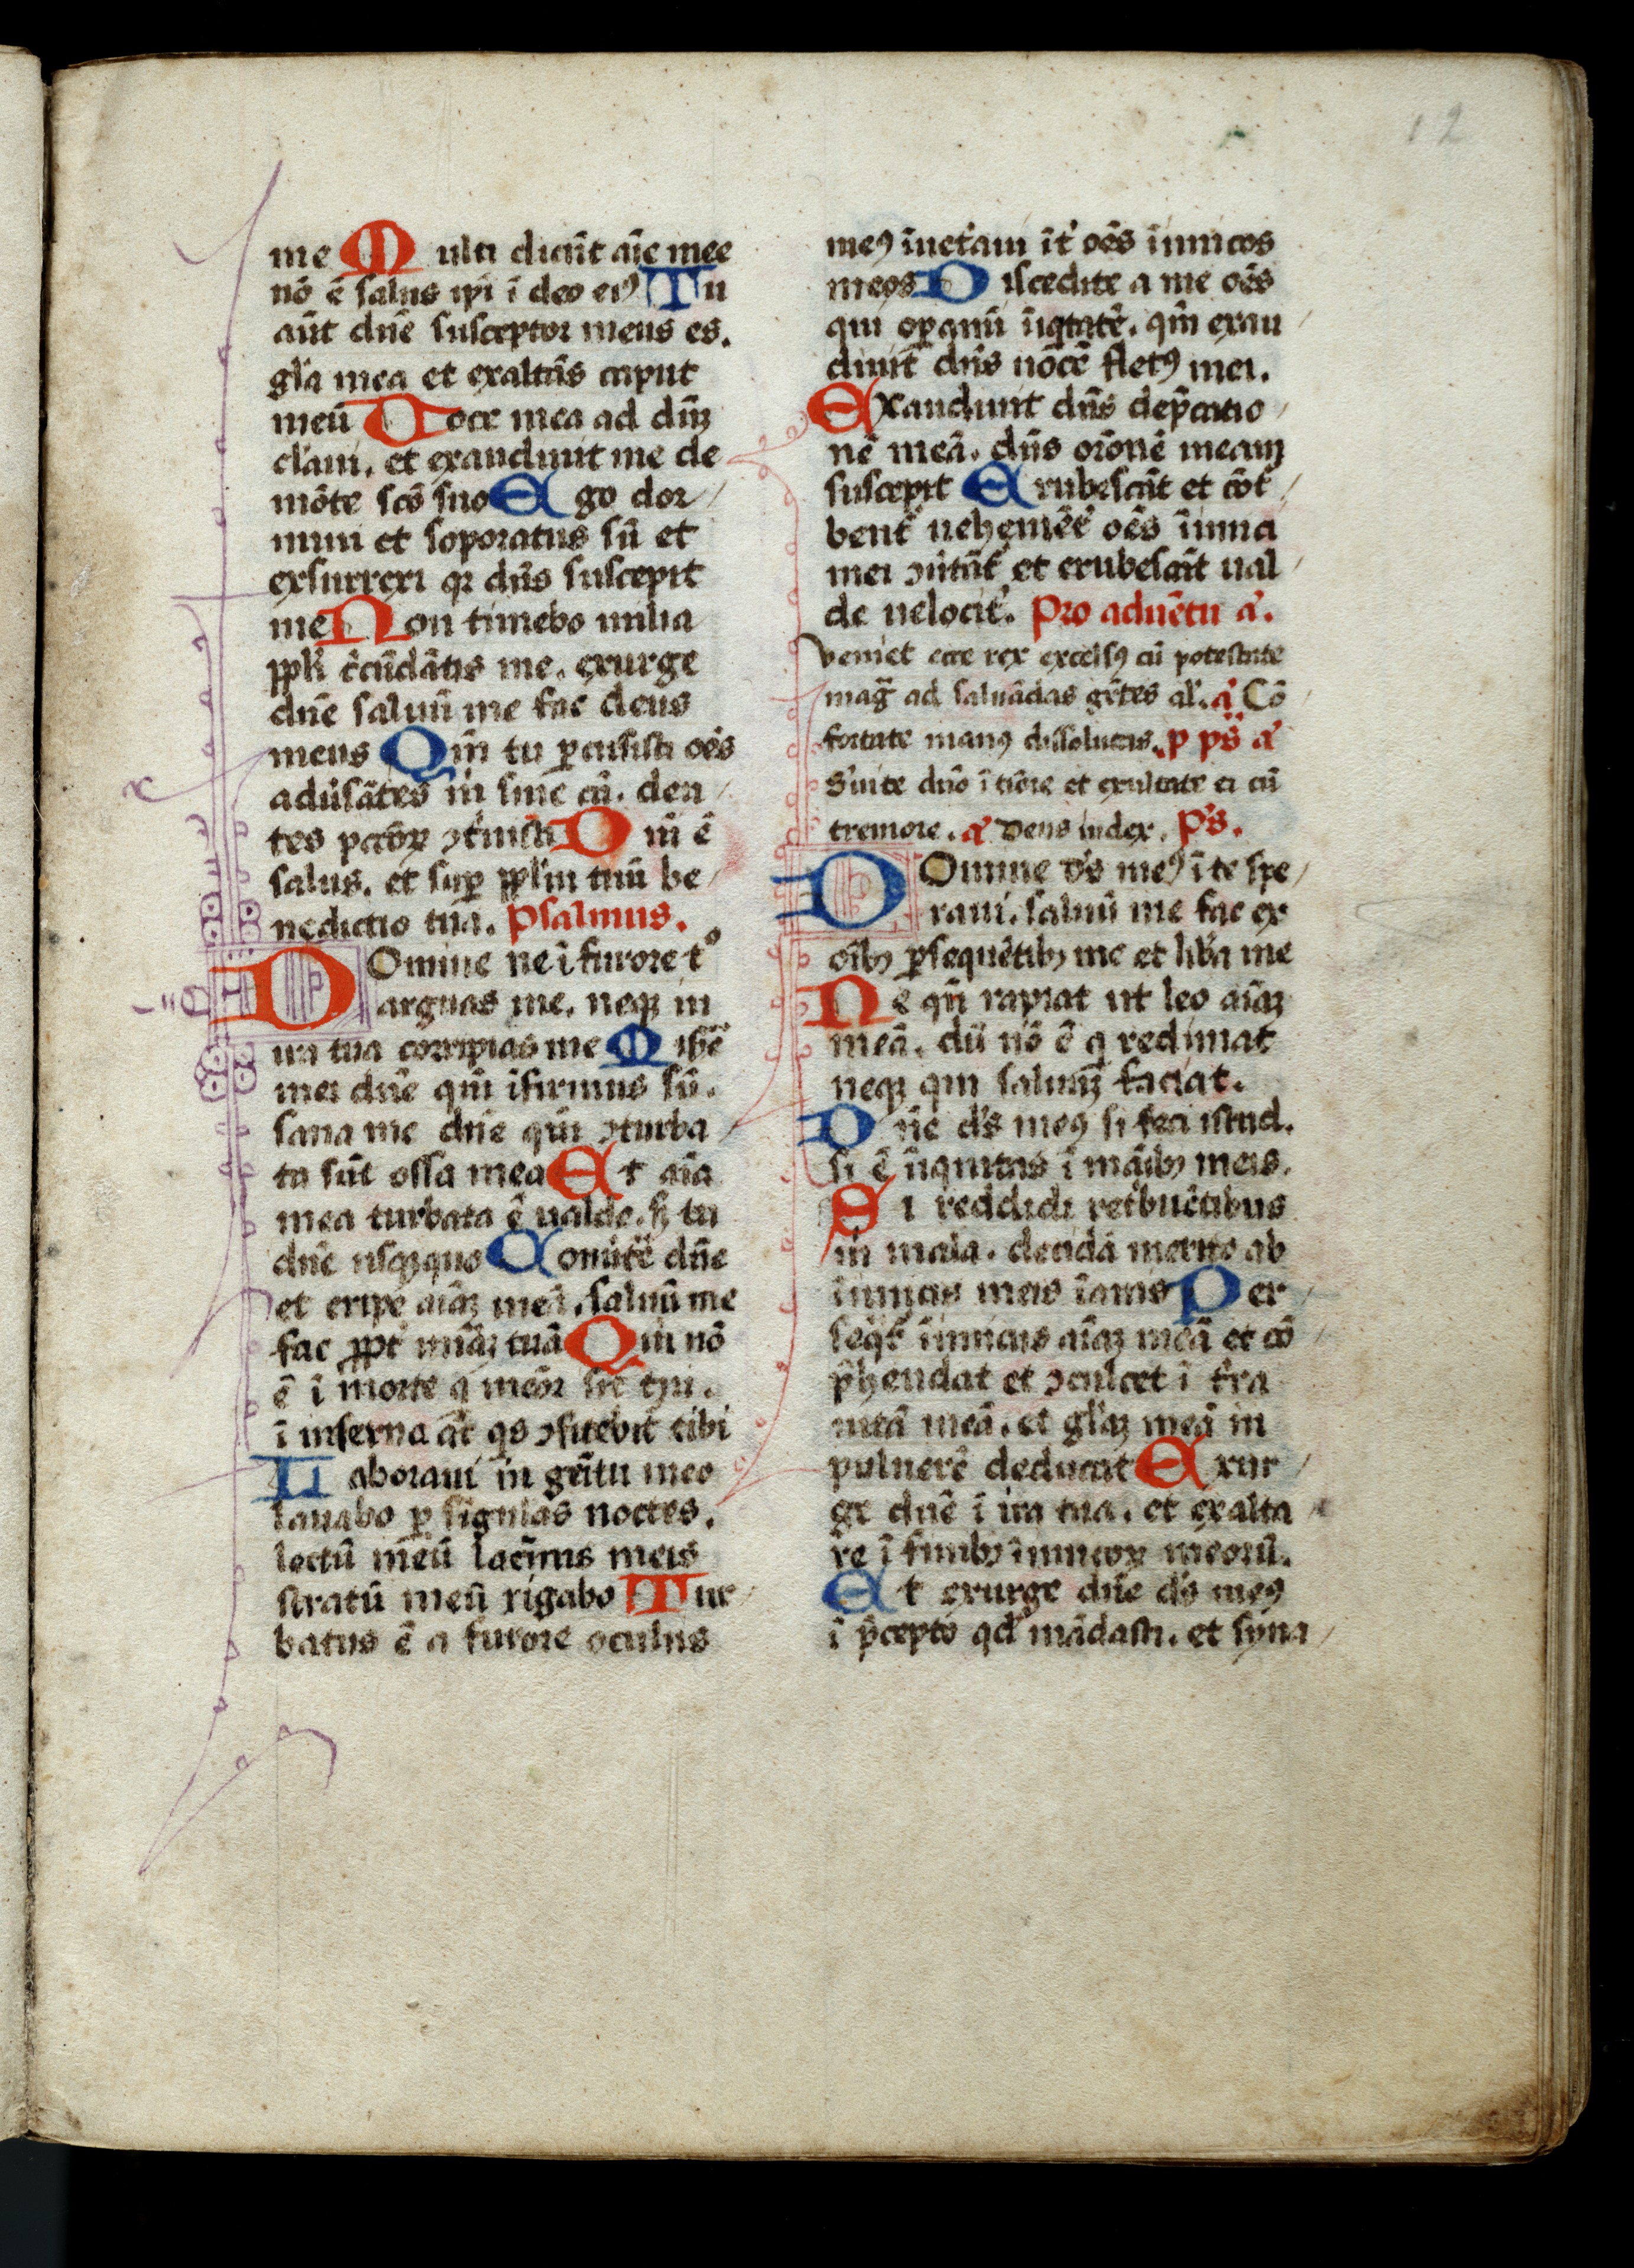 12
me Multi dicũt aĩe mee
nõ ẽ salus ipi ĩ deo eiꝰ Tu
aũt dñe susceptor meus es.
gl̃a mea et exaltãs caput
meũ Voce mea ad dñꝫ
cl̃aui. et exaudiuit me de
mõte scõ suo Ego dor
miui et soporatus sũ et
exsurrexi qꝛ dñs suscepit
me Non timebo milia
ppl̃i c̃cũdãtis me. exurge
dñe saluũ me fac deus
meus Qm̃ tu ꝑcussisti oẽs
adũsãtes m̃ sine cã. den
tes pctõꝝ ꝯt̃uisti Dñi ẽ
salus. et suꝑ ppl̃m tuũ be
nedictio tua. Psalmus.
Domine ne ĩ furore tº
arguas me. neqꝫ in
ira tua corripias me Miẜẽ
mei dñe qm̃ ĩfirmus sũ.
sana me dñe qm̃ ꝯturba
ta sũt ossa mea Et aĩa
mea turbata ẽ ualde. sꝫ tu
dñe usqꝫquo Conũtẽ dñe
et eripe aĩaꝫ meã. saluũ me
fac ꝓpt̃ mĩaꝫ tuã Qm̃ nõ
ẽ ĩ morte q̇ meõr sit tui.
ĩ inferno aũt qs ꝯfitebit̃ tibi
Laboraui in gẽitu meo
lauabo ꝑ sĩgulas noctes.
lectũ meũ lacĩmis meis
stratũ meũ rigabo Tur
batus ẽ a furore oculus
meꝰ ĩuet̃aui ĩt̃ oẽs ĩimicos
meos Discedite a me oẽs
qui oꝑamĩ ĩiqtatẽ. qm̃ exau
diuit dñs uocẽ fletꝰ mei.
Exaudiuit dñs dep̃catio
nẽ meã. dñs orõnẽ meam
suscepit Erubescãt et cõt̃
bent̃ uehemẽt̃ oẽs ĩimici
mei ꝯũtãt̃ et erubescãt ual
de uelocit̃. Pro aduẽtu a̾.
Veniet ecce rex excelsꝰ cũ potestate
mag̃ ad saluãdas gẽtes al̾. a̾ Cõ
fortate manꝰ dissolutas. ꝑ ps̃ a̾
S̾uite dño ĩ tĩore et exultate ei cũ
tremore. a̾ Deus iudex. Ps̃.
Domine ds̃ meꝰ ĩ te spe
raui. saluũ me fac ex
oĩbꝫ ꝑsequẽtibꝫ me et lib̃a me
Ne qñ rapiat ut leo aĩaꝫ
meã. dũ nõ ẽ q̇ redimat
neqꝫ qui saluũ faciat.
Dñe ds̃ meꝰ si feci istud.
si ẽ ĩiquitas ĩ mãibꝫ meis.
Si reddidi ret̃buẽtibus
m̃ mala. decidã merito ab
ĩimicis meis ĩanis Per
seq̃t̃ ĩimicus aĩaꝫ meã et cõ
p̃hendat et ꝯculcet ĩ t̃ra
uitã meã. et gl̃iaꝫ meã in
puluerẽ deducat Exur
ge dñe ĩ ira tua. et exalta
re ĩ finibꝫ ĩimicoꝝ meorũ.
Et exurge dñe ds̃ meꝰ
ĩ p̃cepto qd̃ mãdasti. et syna